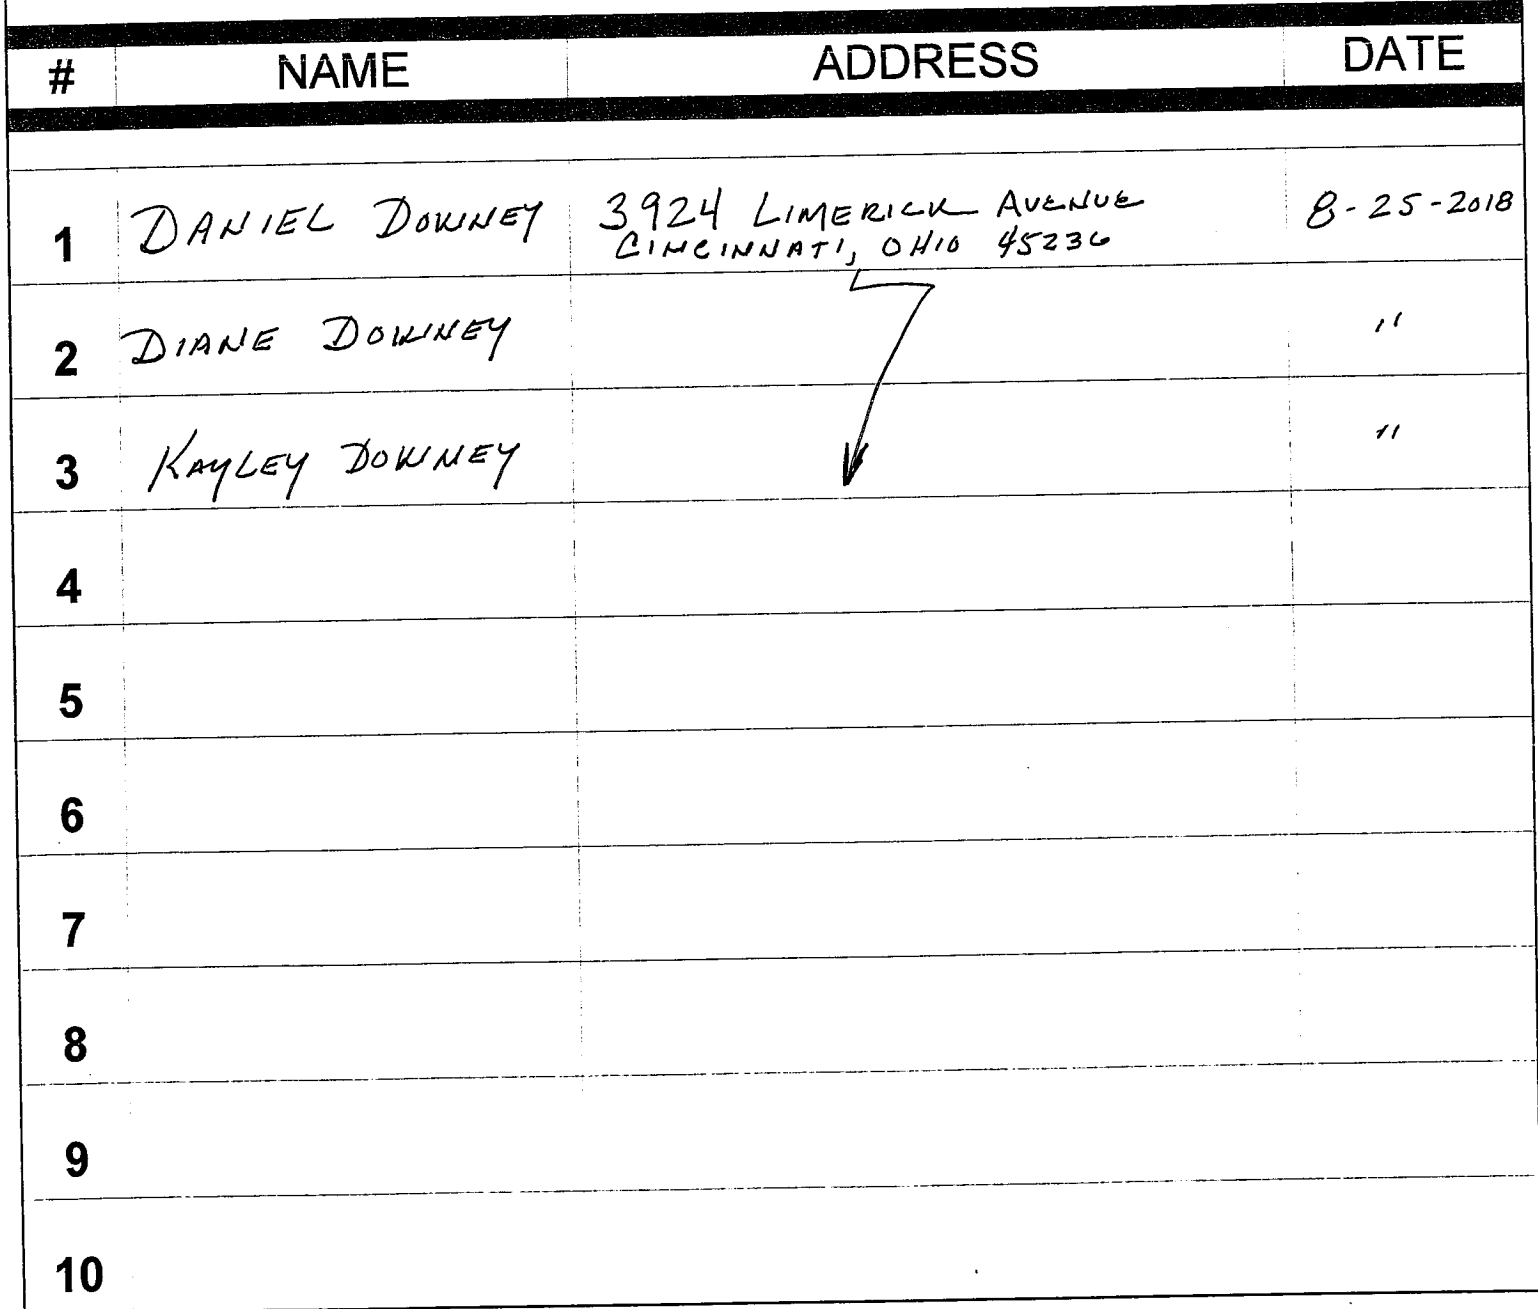 # NAME ADDRESS DATE
1 DANIEL DOWNEY 3924 LIMERICK AVENUE 8-25-2018
CINCINNATI, OHIO 45236
2 DIANE DOWNEY "
3 KAYLEY DOWNEY "
4
5
6
7
8
9
10